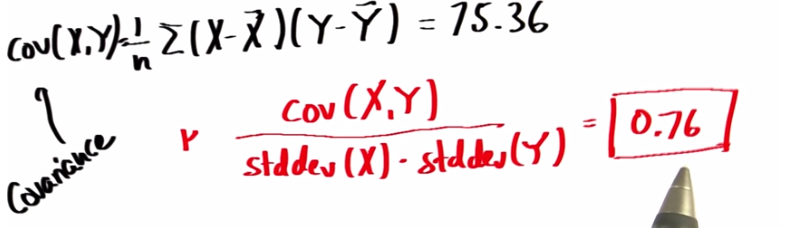 Cov(X,Y)=1/n Σ(X-X̄)(Y-Ȳ) = 75.36
Covariance
r cov(X,Y) / stddev(X)·stddev(Y) = 0.76